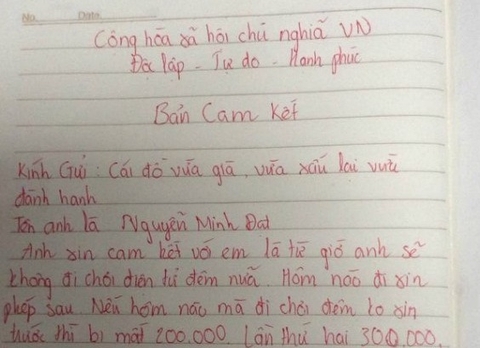 No. Date
Công hòa xã hôi chủ nghiã VN
Đôc lâp - Tự do - Hanh phúc
Bản Cam kết
Kính Gửi : Cái đồ vừa già, vừa xấu lại vừa
đành hanh
Tên anh là Nguyễn Minh Đat
Anh xin cam kết với em là từ giờ anh sẽ
không đi chơi điện tử đêm nữa. Hôm nào đi xin
phép sau. Nếu hôm nào mà đi chơi đêm ko xin
trước thì bi mất 200.000. Lần thứ hai 300.000.